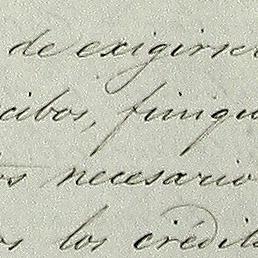 de exigirse
cibos, finiqu
os necesario
os los crédit